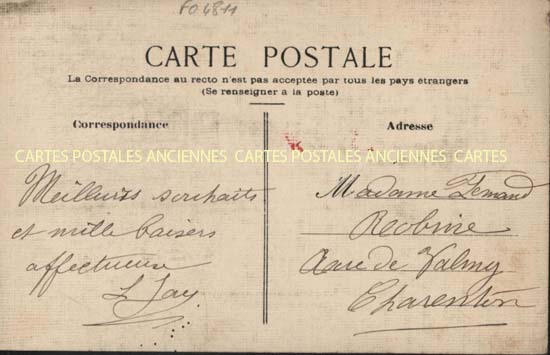 FO 4811
CARTE POSTALE
La Correspondance au recto n'est pas acceptée par tous les pays étrangers
(Se renseigner à la poste)
Correspondance
Adresse
CARTES POSTALES ANCIENNES CARTES POSTALES ANCIENNES CARTES
Meilleurs souhaits
et mille baisers
affectueuse
L Jay
Madame Fernand
rue de Valmy
Charenton